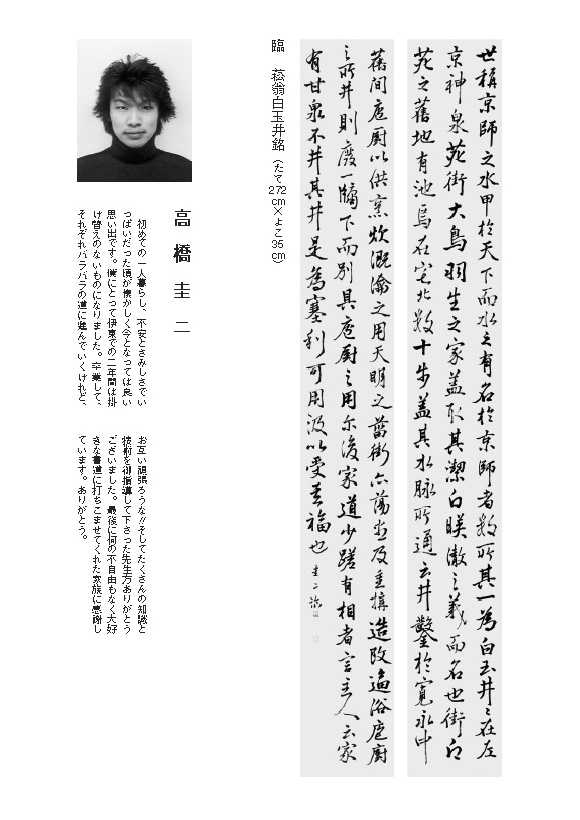 世稱京師之水甲於天下而水之有名於京師者數所其一為白玉井〻在左
京神泉苑街大鳥羽生之家蓋取其潔白瑛澈之義而名也街乃
苑之舊地有池焉在宅北數十步蓋其水脉所通云井鑿於寬永中
舊間庖厨以供烹炊溉瀹之用天明之菑街亦蕩盡及重搆造改浴庖厨
之所井則廢一牖下而別具庖厨之用尓後家道少蹉有相者言主人云家
有甘泉不井其井是為塞利可用汲以受福也 圭二臨
臨 菘翁白玉井銘(たて272cm×よこ35cm)
高橋圭二
初めての一人暮らし、不安とさみしさでい
っぱいだった頃が懐かしく今となっては良い
思い出です。僕にとって伊東での二年間は掛
け替えのないものになりました。卒業して、
それぞれバラバラの道に進んでいくけれど、
お互い頑張ろうな!!そしてたくさんの知識と
技術を御指導して下さった先生方ありがとう
ございました。最後に何の不自由もなく大好
きな書道に打ちこませてくれた家族に感謝し
ています。ありがとう。